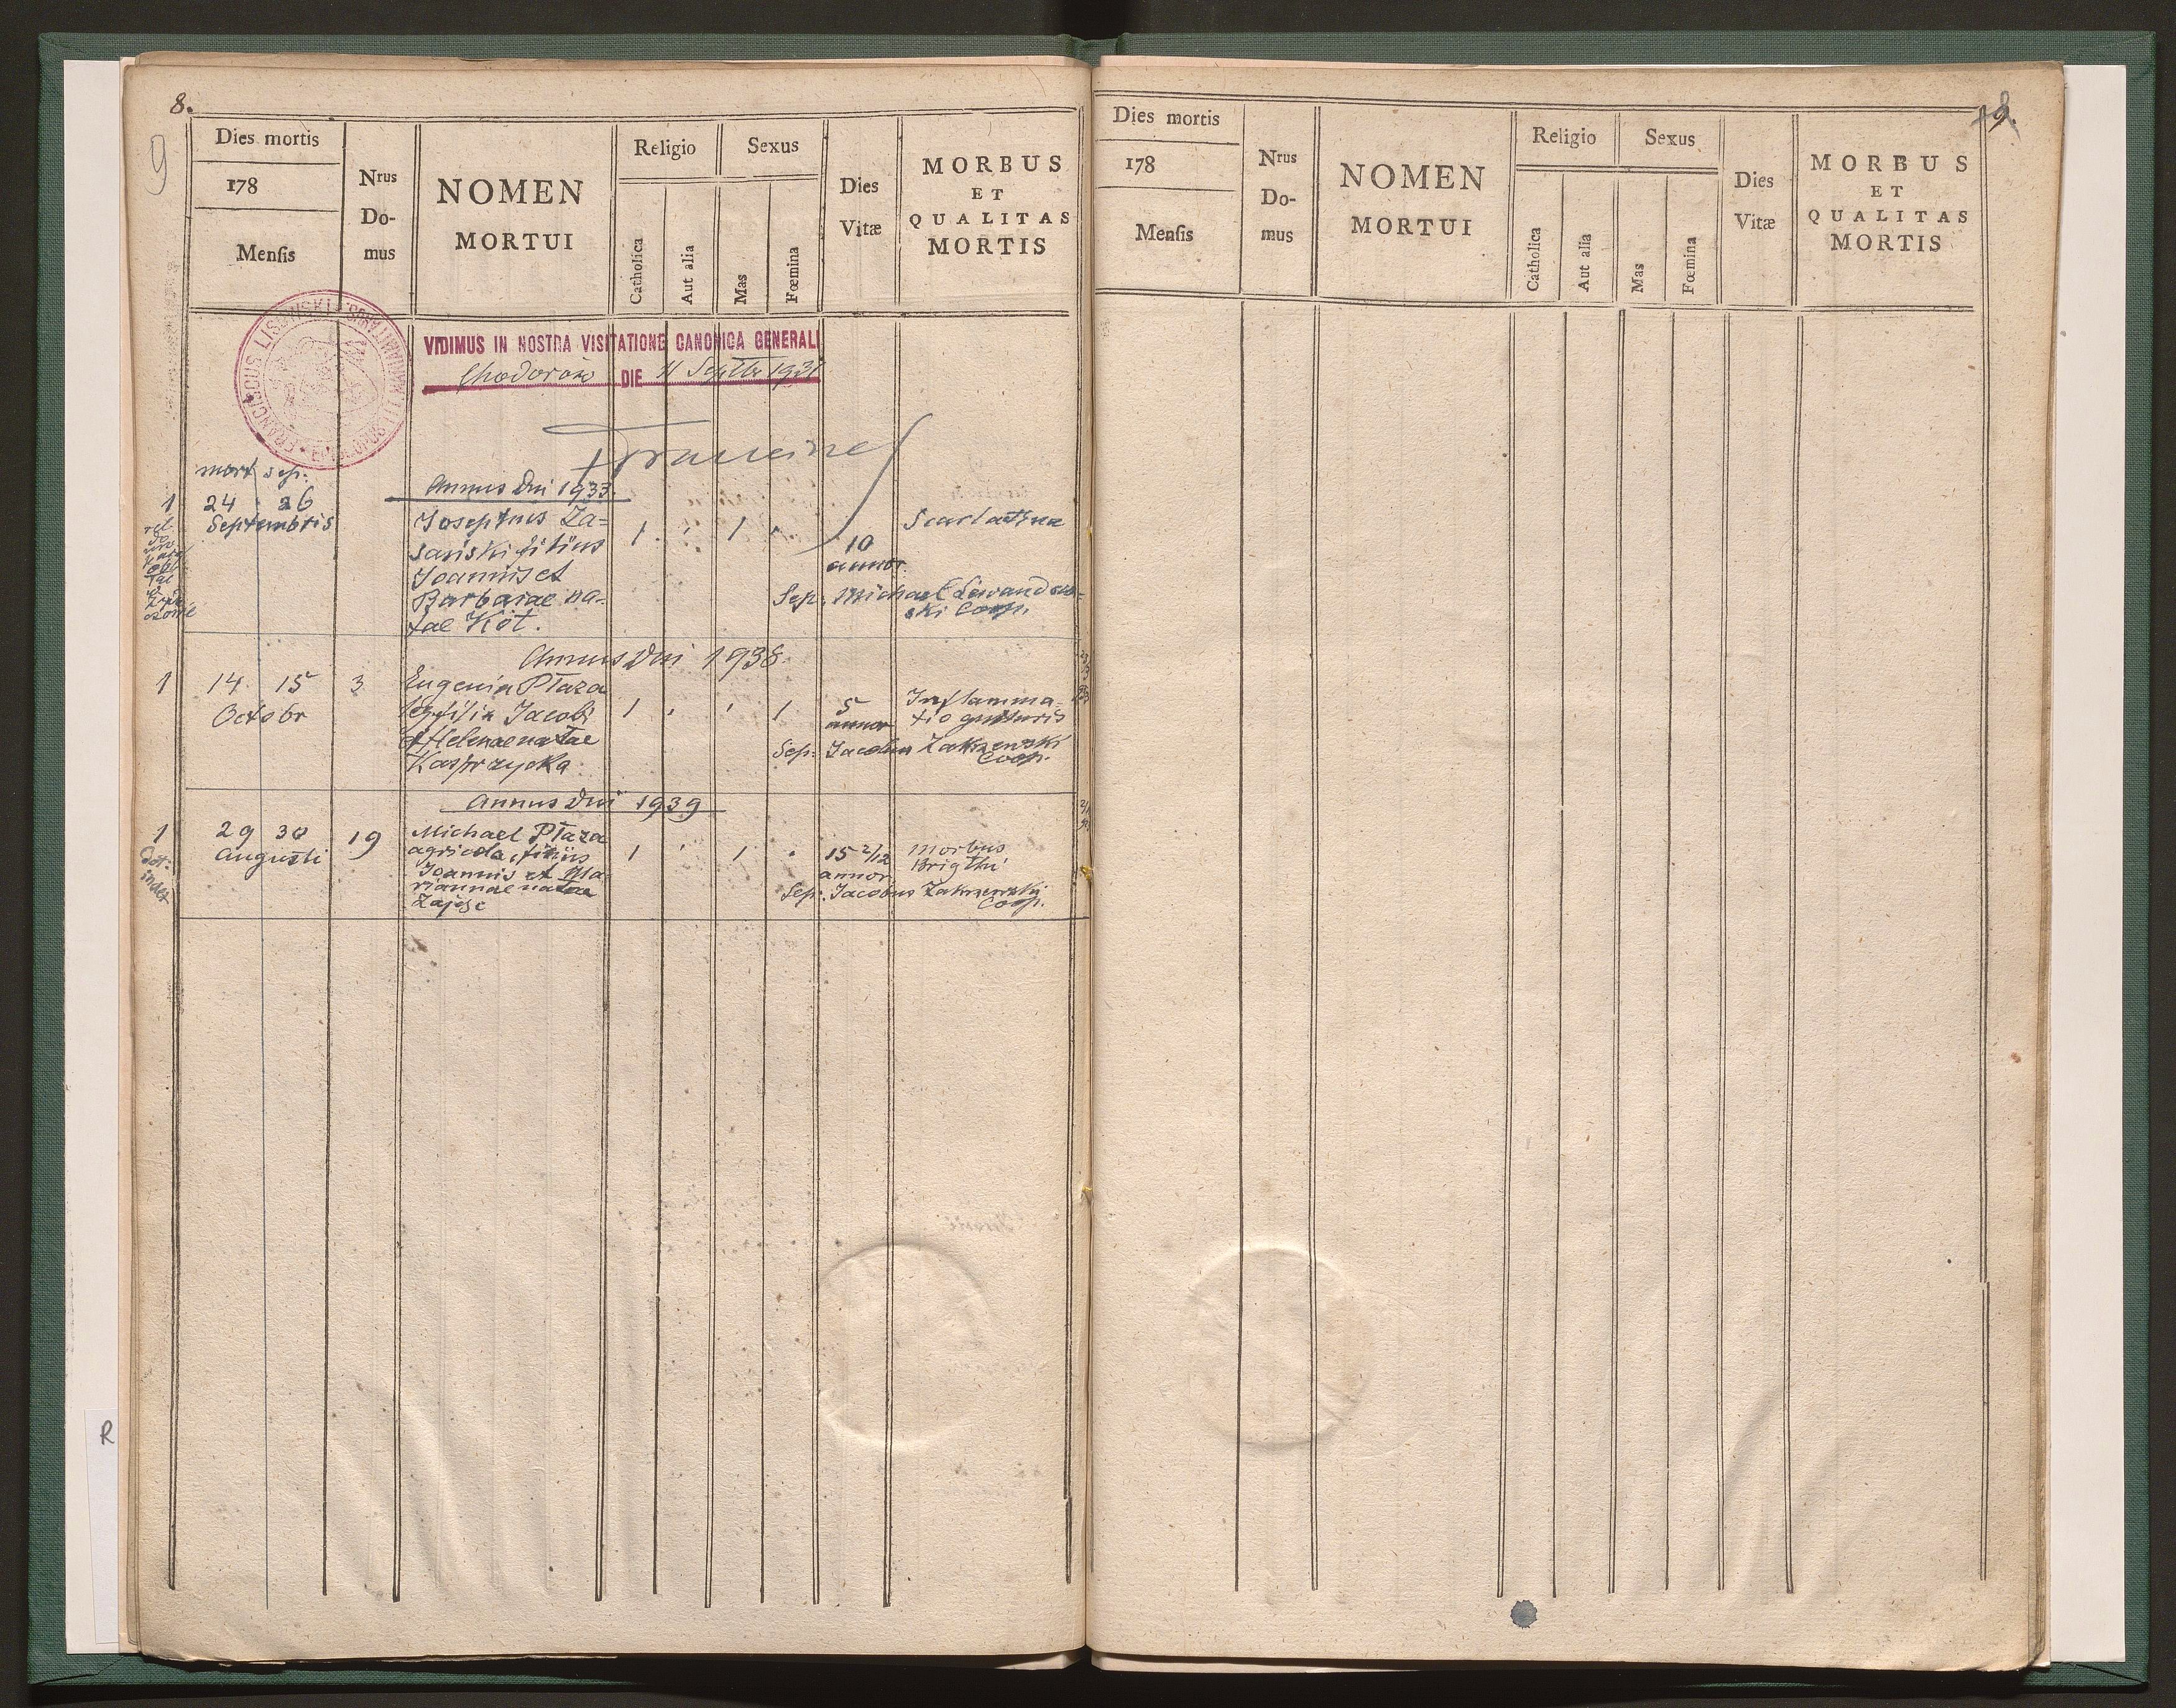 8.
9
Dies mortis
178
Menſis
Nrus
Do-
mus
NOMEN
MORTUI
Religio
Catholica
Aut alia
Sexus
Mas
Fœmina
Dies
Vitæ
MORBUS
ET
QUALITAS
MORTIS
VIDIMUS IN NOSTRA VISITATIONE CANONICA GENERALI
DIE 11 1931
FRANCISCUS LISOWSKI
mort sep.
Annus Dni 1933.
1
24 26
Septembris
Josephus Za=
sański filius
Joannis et
Barbarae na-
tae Kot.
1 . 1 .
10
annor.
Scarlatina
Sep. Michael Lewandow-
ski Coop.
Annus Dni 1938.
1
14 15
Octobr
3
Eugenia Płaza
filia Jacobi
et Helenae natae
Kasprzycka
1 . . 1
5
annor
Inflamma-
tio gutturis
Sep: Jacobus Zakrzewski
Coop.
Annus Dni 1939
1
29 30
Augusti
19
Michael Płaza
agricola, filius
Joannis et Ma
riannae natae
Zając
1 . 1 .
15 2/12
annor
Morbus
Brigthi
Sep: Jacobus Zakrzewski
Coop.
index
R
9.
Dies mortis
178
Menſis
Nrus
Do-
mus
NOMEN
MORTUI
Religio
Catholica
Aut alia
Sexus
Mas
Fœmina
Dies
Vitæ
MORBUS
ET
QUALITAS
MORTIS